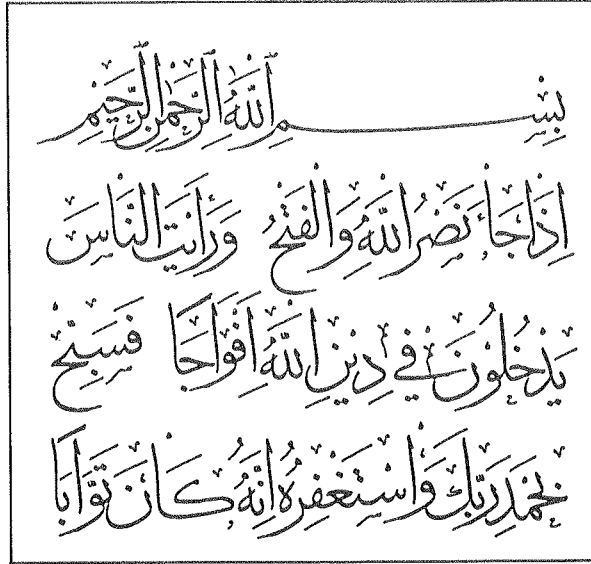 بِسْمِ اللّٰهِ الرَّحْمٰنِ الرَّحِيْمِ
اِذَا جَاۤءَ نَصْرُ اللّٰهِ وَالْفَتْحُ وَرَأَيْتَ النَّاسَ
يَدْخُلُوْنَ فِيْ دِيْنِ اللّٰهِ اَفْوَاجًا فَسَبِّحْ
بِحَمْدِ رَبِّكَ وَاسْتَغْفِرْهُ اِنَّهُ كَانَ تَوَّابًا